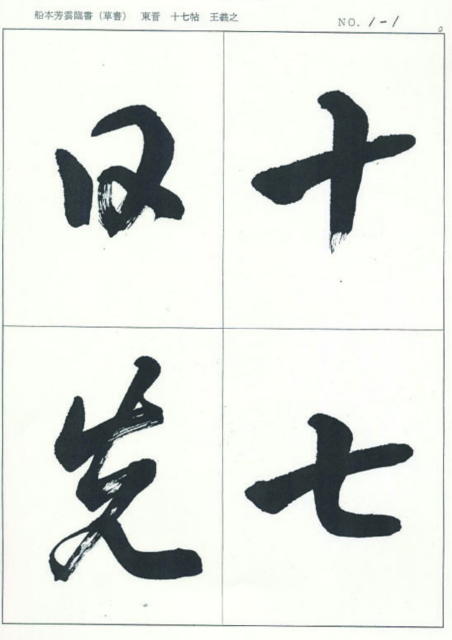 船本芳雲臨書(草書) 東晋 十七帖 王羲之
NO. 1-1
十
七
日
先